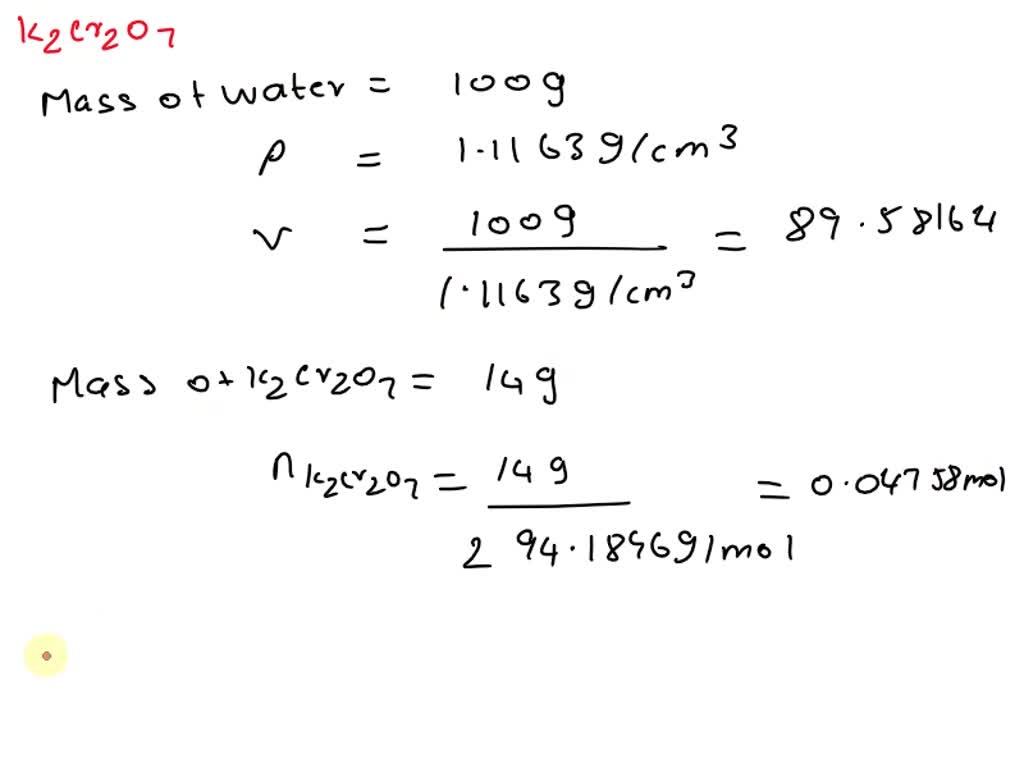 K2Cr2O7
Mass of water = 100g
ρ = 1.1163g/cm3
v = 100g / 1.1163g/cm3 = 89.58164
Mass of K2Cr2O7 = 14g
nK2Cr2O7 = 14g / 294.1846g/mol = 0.04758mol